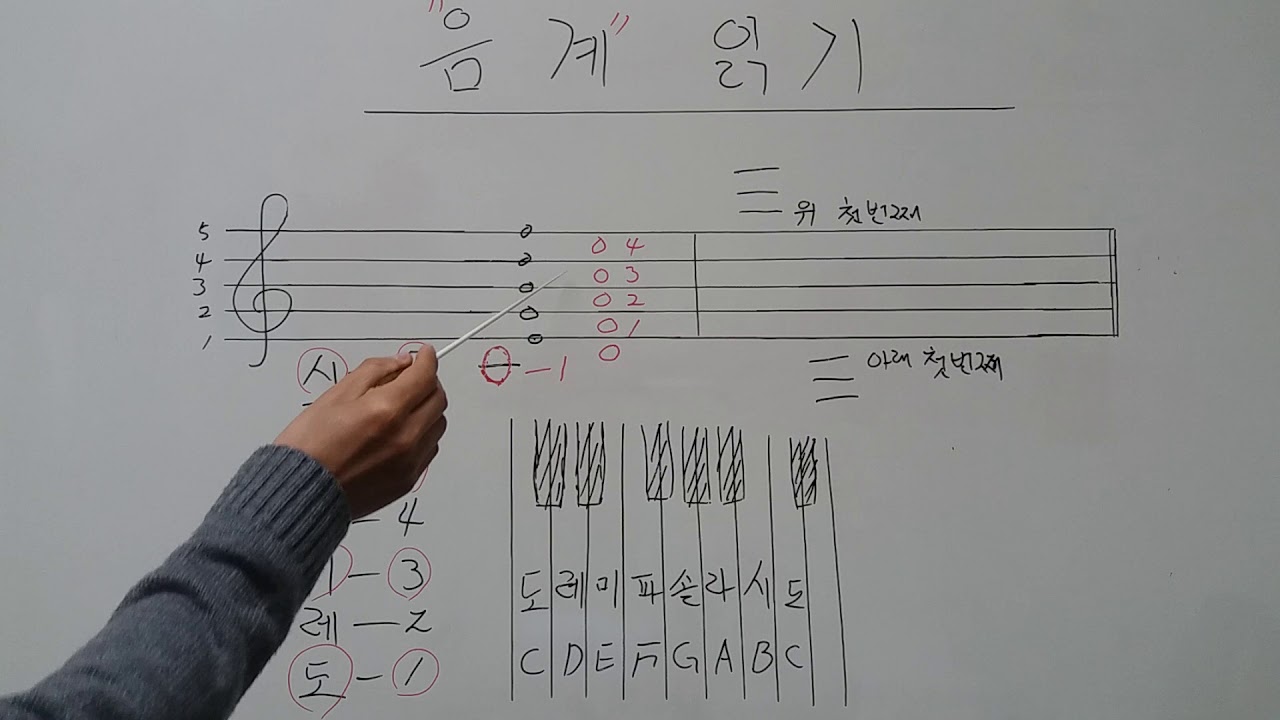 "음계" 읽기
위 첫번째
5
4
3
2
1
4
3
2
1
시
-1
아래 첫번째
-4
-3
레-2
도-1
도 레 미 파 솔 라 시 도
C D E F G A B C